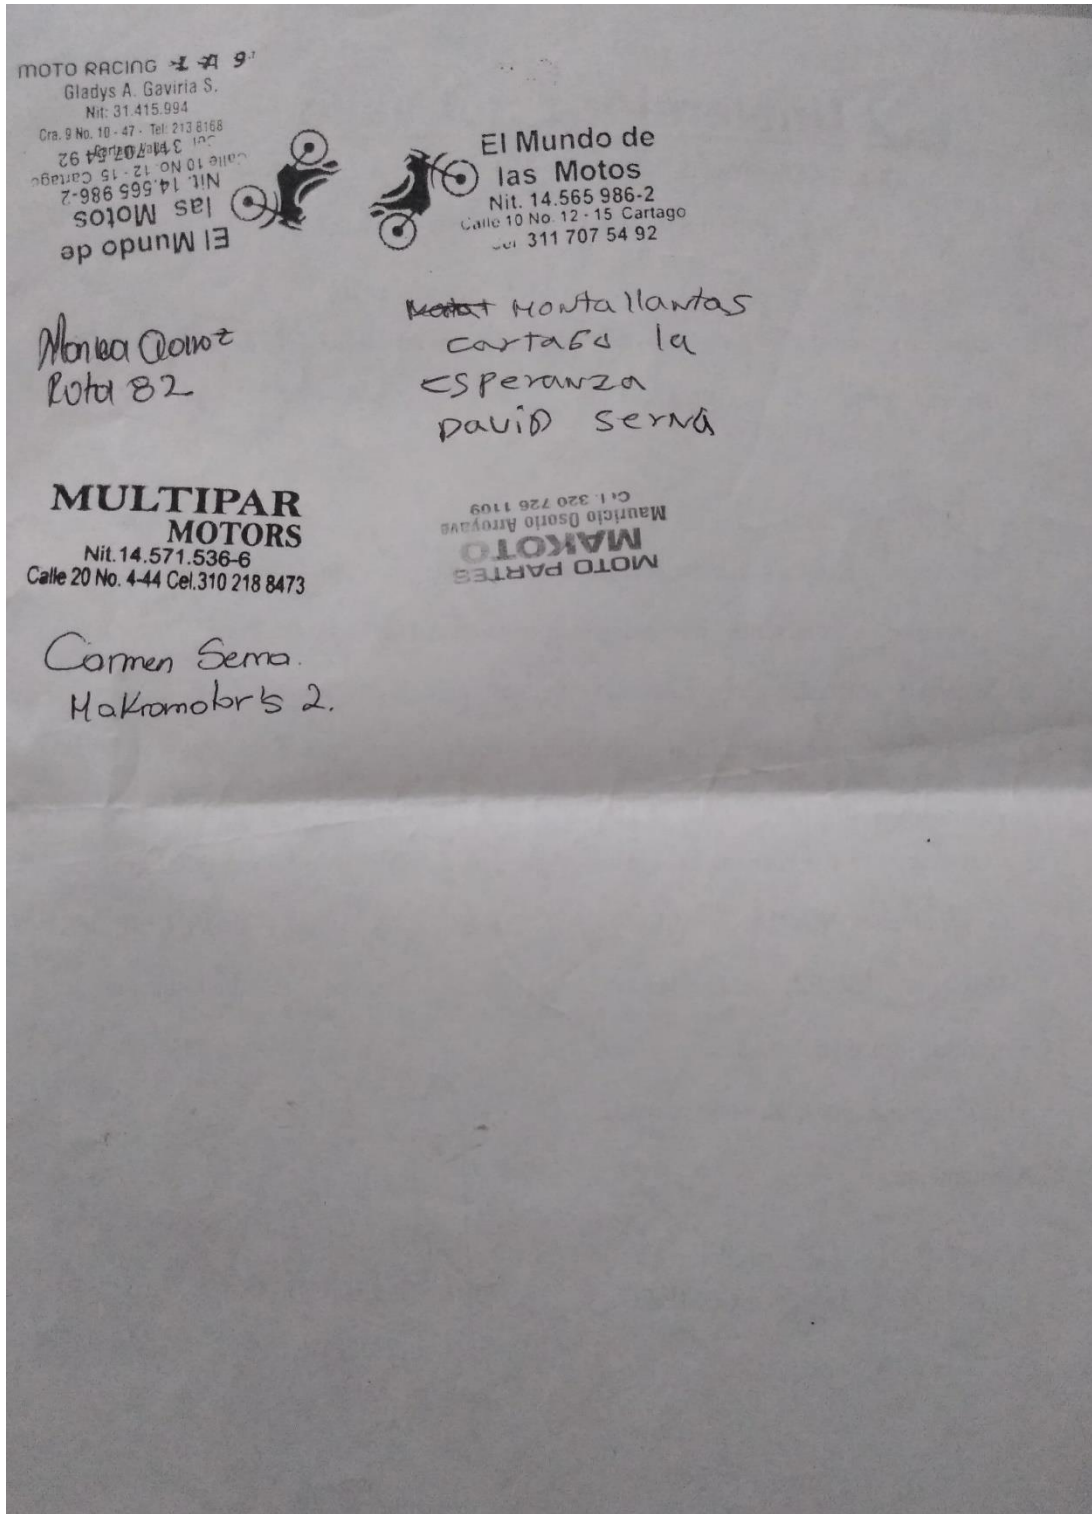 MOTO RACING LA 9
Gladys A. Gaviria S.
Nit: 31.415.994
Cra. 9 No. 10 - 47 - Tel: 213 8168
El Mundo de
las Motos
Nit. 14.565 986-2
Calle 10 No. 12 - 15 Cartago
El Mundo de
las Motos
Nit. 14.565 986-2
Calle 10 No. 12 - 15 Cartago
Cel 311 707 54 92
Monica
Ruta 82
Montallantas
cartago la
Esperanza
DaviD Serna
MULTIPAR
MOTORS
Nit.14.571.536-6
Calle 20 No. 4-44 Cel.310 218 8473
MOTO PARTES
MAKOTO
Mauricio Osorio Arroyave
Cel. 320 726 1109
Carmen Serna.
Makromotor's 2.